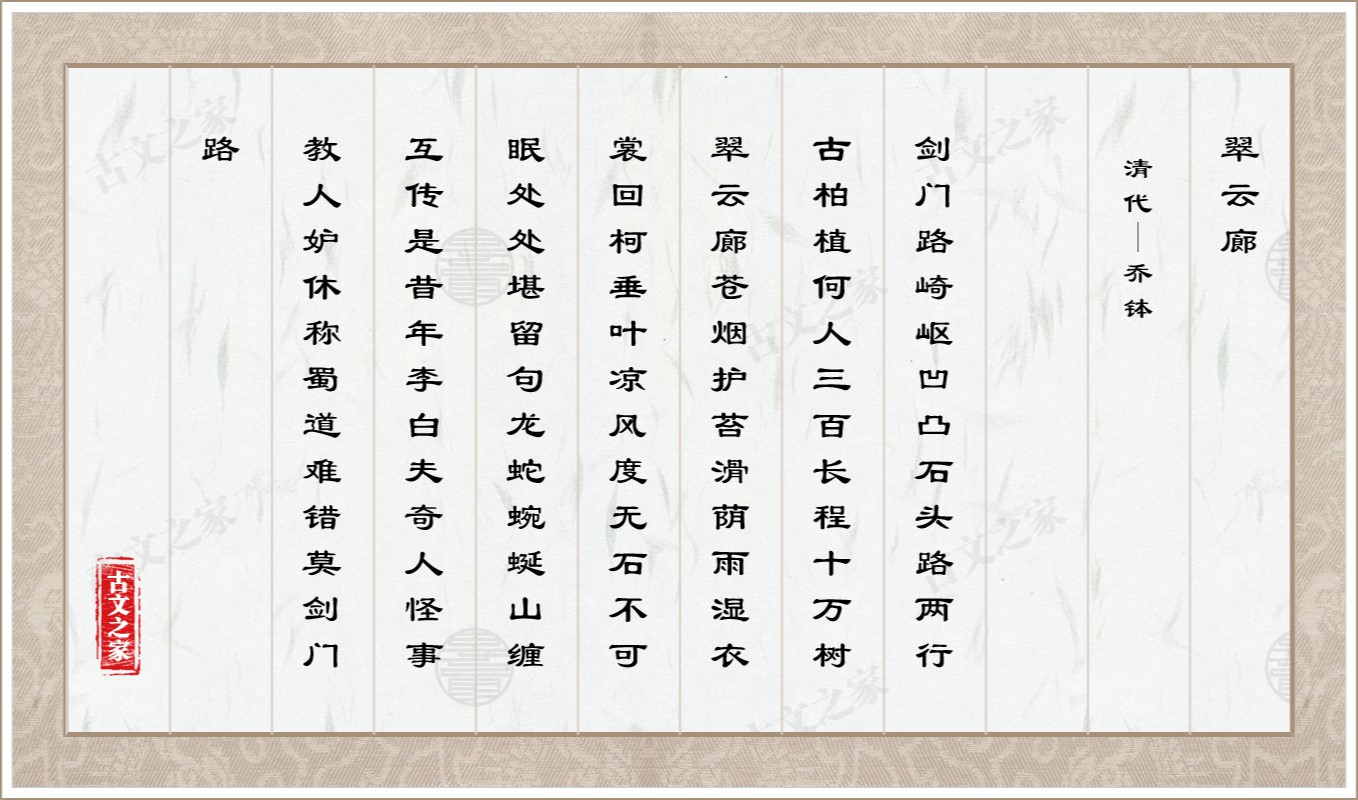 翠云廊
清代—乔钵
剑门路崎岖凹凸石头路两行
古柏植何人三百长程十万树
翠云廊苍烟护苔滑荫雨湿衣
裳回柯垂叶凉风度无石不可
眠处处堪留句龙蛇蜿蜒山缠
互传是昔年李白夫奇人怪事
教人妒休称蜀道难错莫剑门
路
古文之家